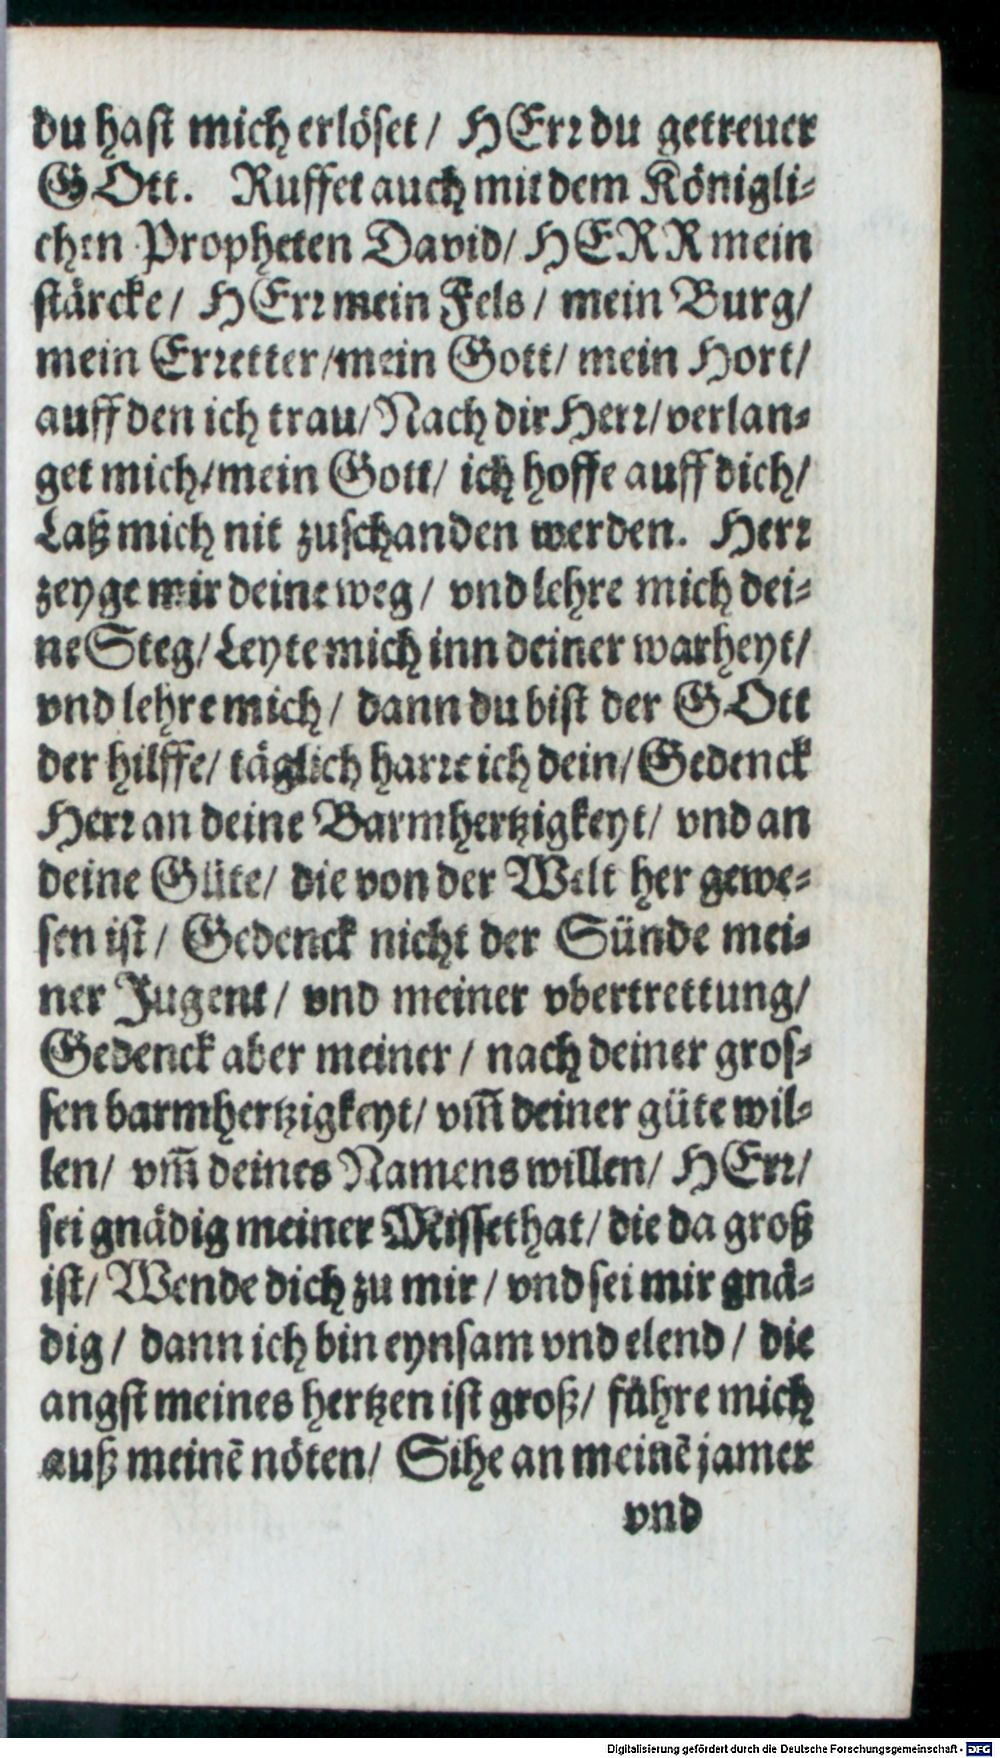 du hast mich erlöset / HErr du getreuer
GOtt. Ruffet auch mit dem Königli-
chen Propheten David / HERR mein
stärcke / HErr mein Fels / mein Burg /
mein Erretter / mein Gott / mein Hort /
auff den ich trau / Nach dir Herr / verlan-
get mich / mein Gott / ich hoffe auff dich /
Laß mich nit zuschanden werden. Herr
zeyge mir deine weg / vnd lehre mich dei-
ne Steg / Leyte mich inn deiner warheyt /
vnd lehre mich / dann du bist der GOtt
der hilffe / täglich harre ich dein / Gedenck
Herr an deine Barmhertzigkeyt / vnd an
deine Güte / die von der Welt her gewe-
sen ist / Gedenck nicht der Sünde mei-
ner Jugent / vnd meiner vbertrettung /
Gedenck aber meiner / nach deiner gros-
sen barmhertzigkeyt / vm̃ deiner güte wil-
len / vm̃ deines Namens willen / HErr /
sei gnädig meiner Missethat / die da groß
ist / Wende dich zu mir / vnd sei mir gnä-
dig / dann ich bin eynsam vnd elend / die
angst meines hertzen ist groß / führe mich
auß meinē nöten / Sihe an meinē jamer
vnd
Digitalisierung gefördert durch die Deutsche Forschungsgemeinschaft - DFG